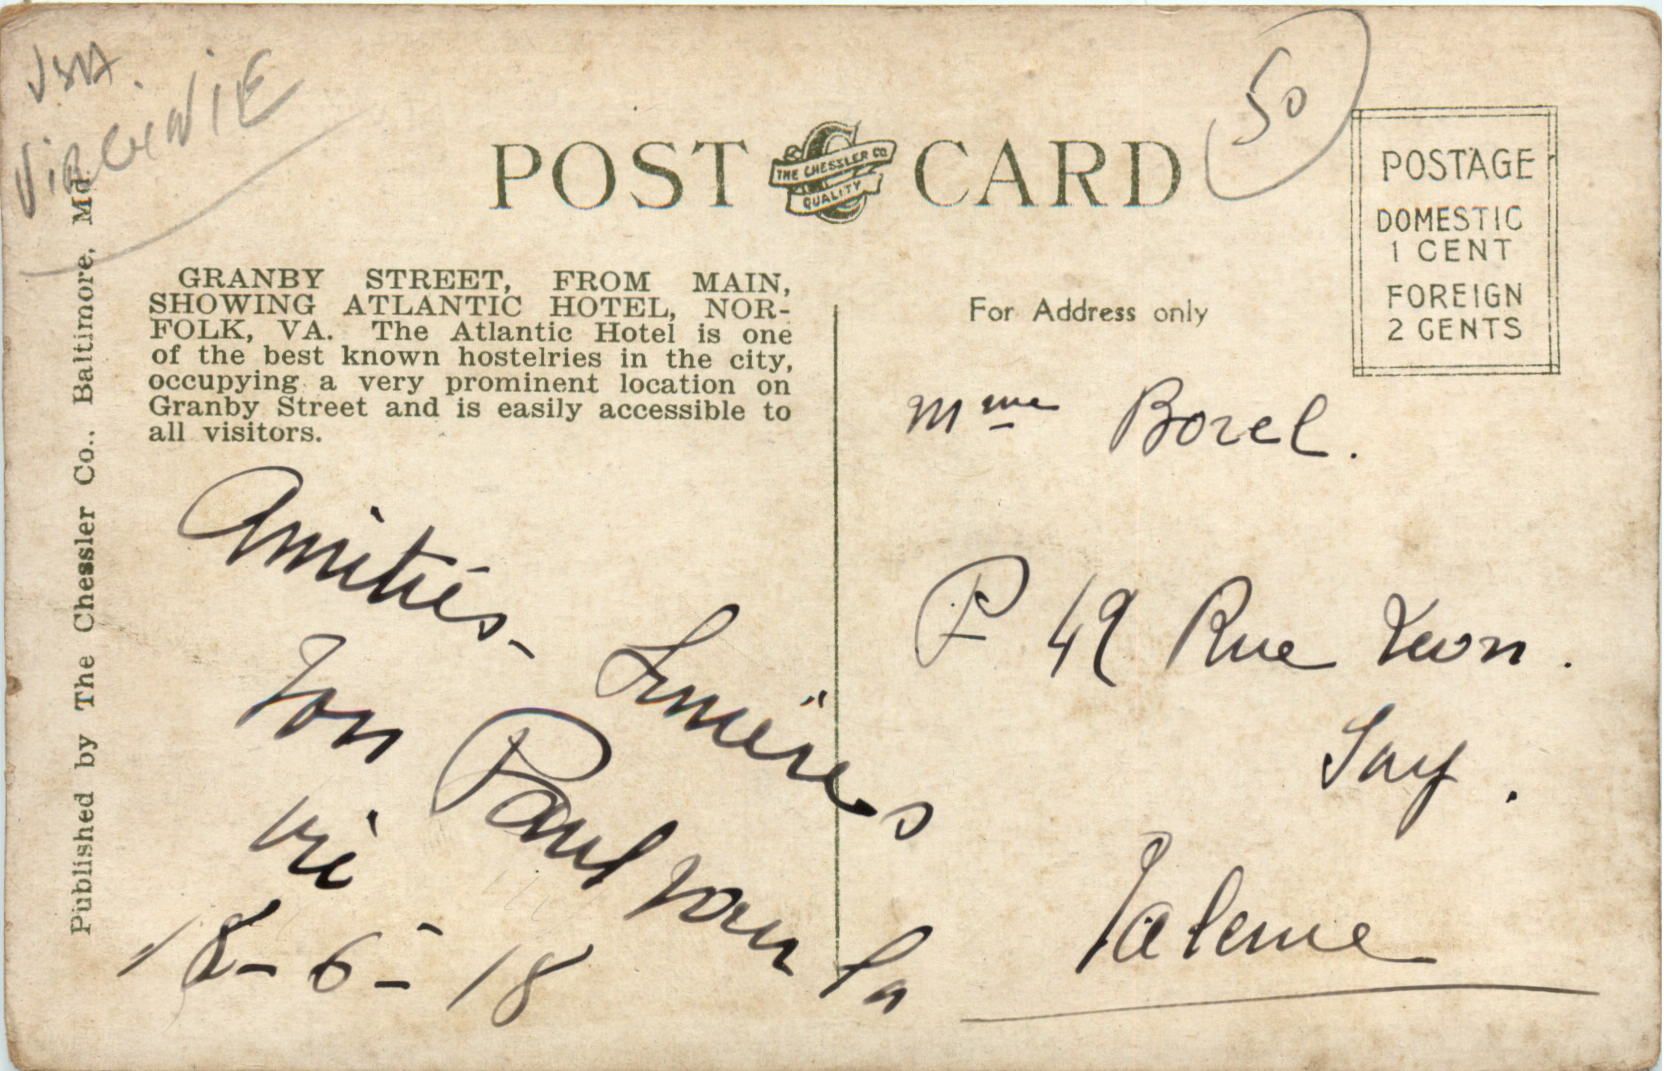 USA.
VIRGINIE
50
POST CARD
THE CHESSLER CO.
QUALITY
POSTAGE
DOMESTIC
1 CENT
FOREIGN
2 CENTS
Published by The Chessler Co., Baltimore, Md.
GRANBY STREET, FROM MAIN,
SHOWING ATLANTIC HOTEL, NOR-
FOLK, VA. The Atlantic Hotel is one
of the best known hostelries in the city,
occupying a very prominent location on
Granby Street and is easily accessible to
all visitors.
Amitiés - Sincères
Ton Paul pour la
vie
18-6-18
For Address only
Mme Borel.
49 Rue Leon.
Say.